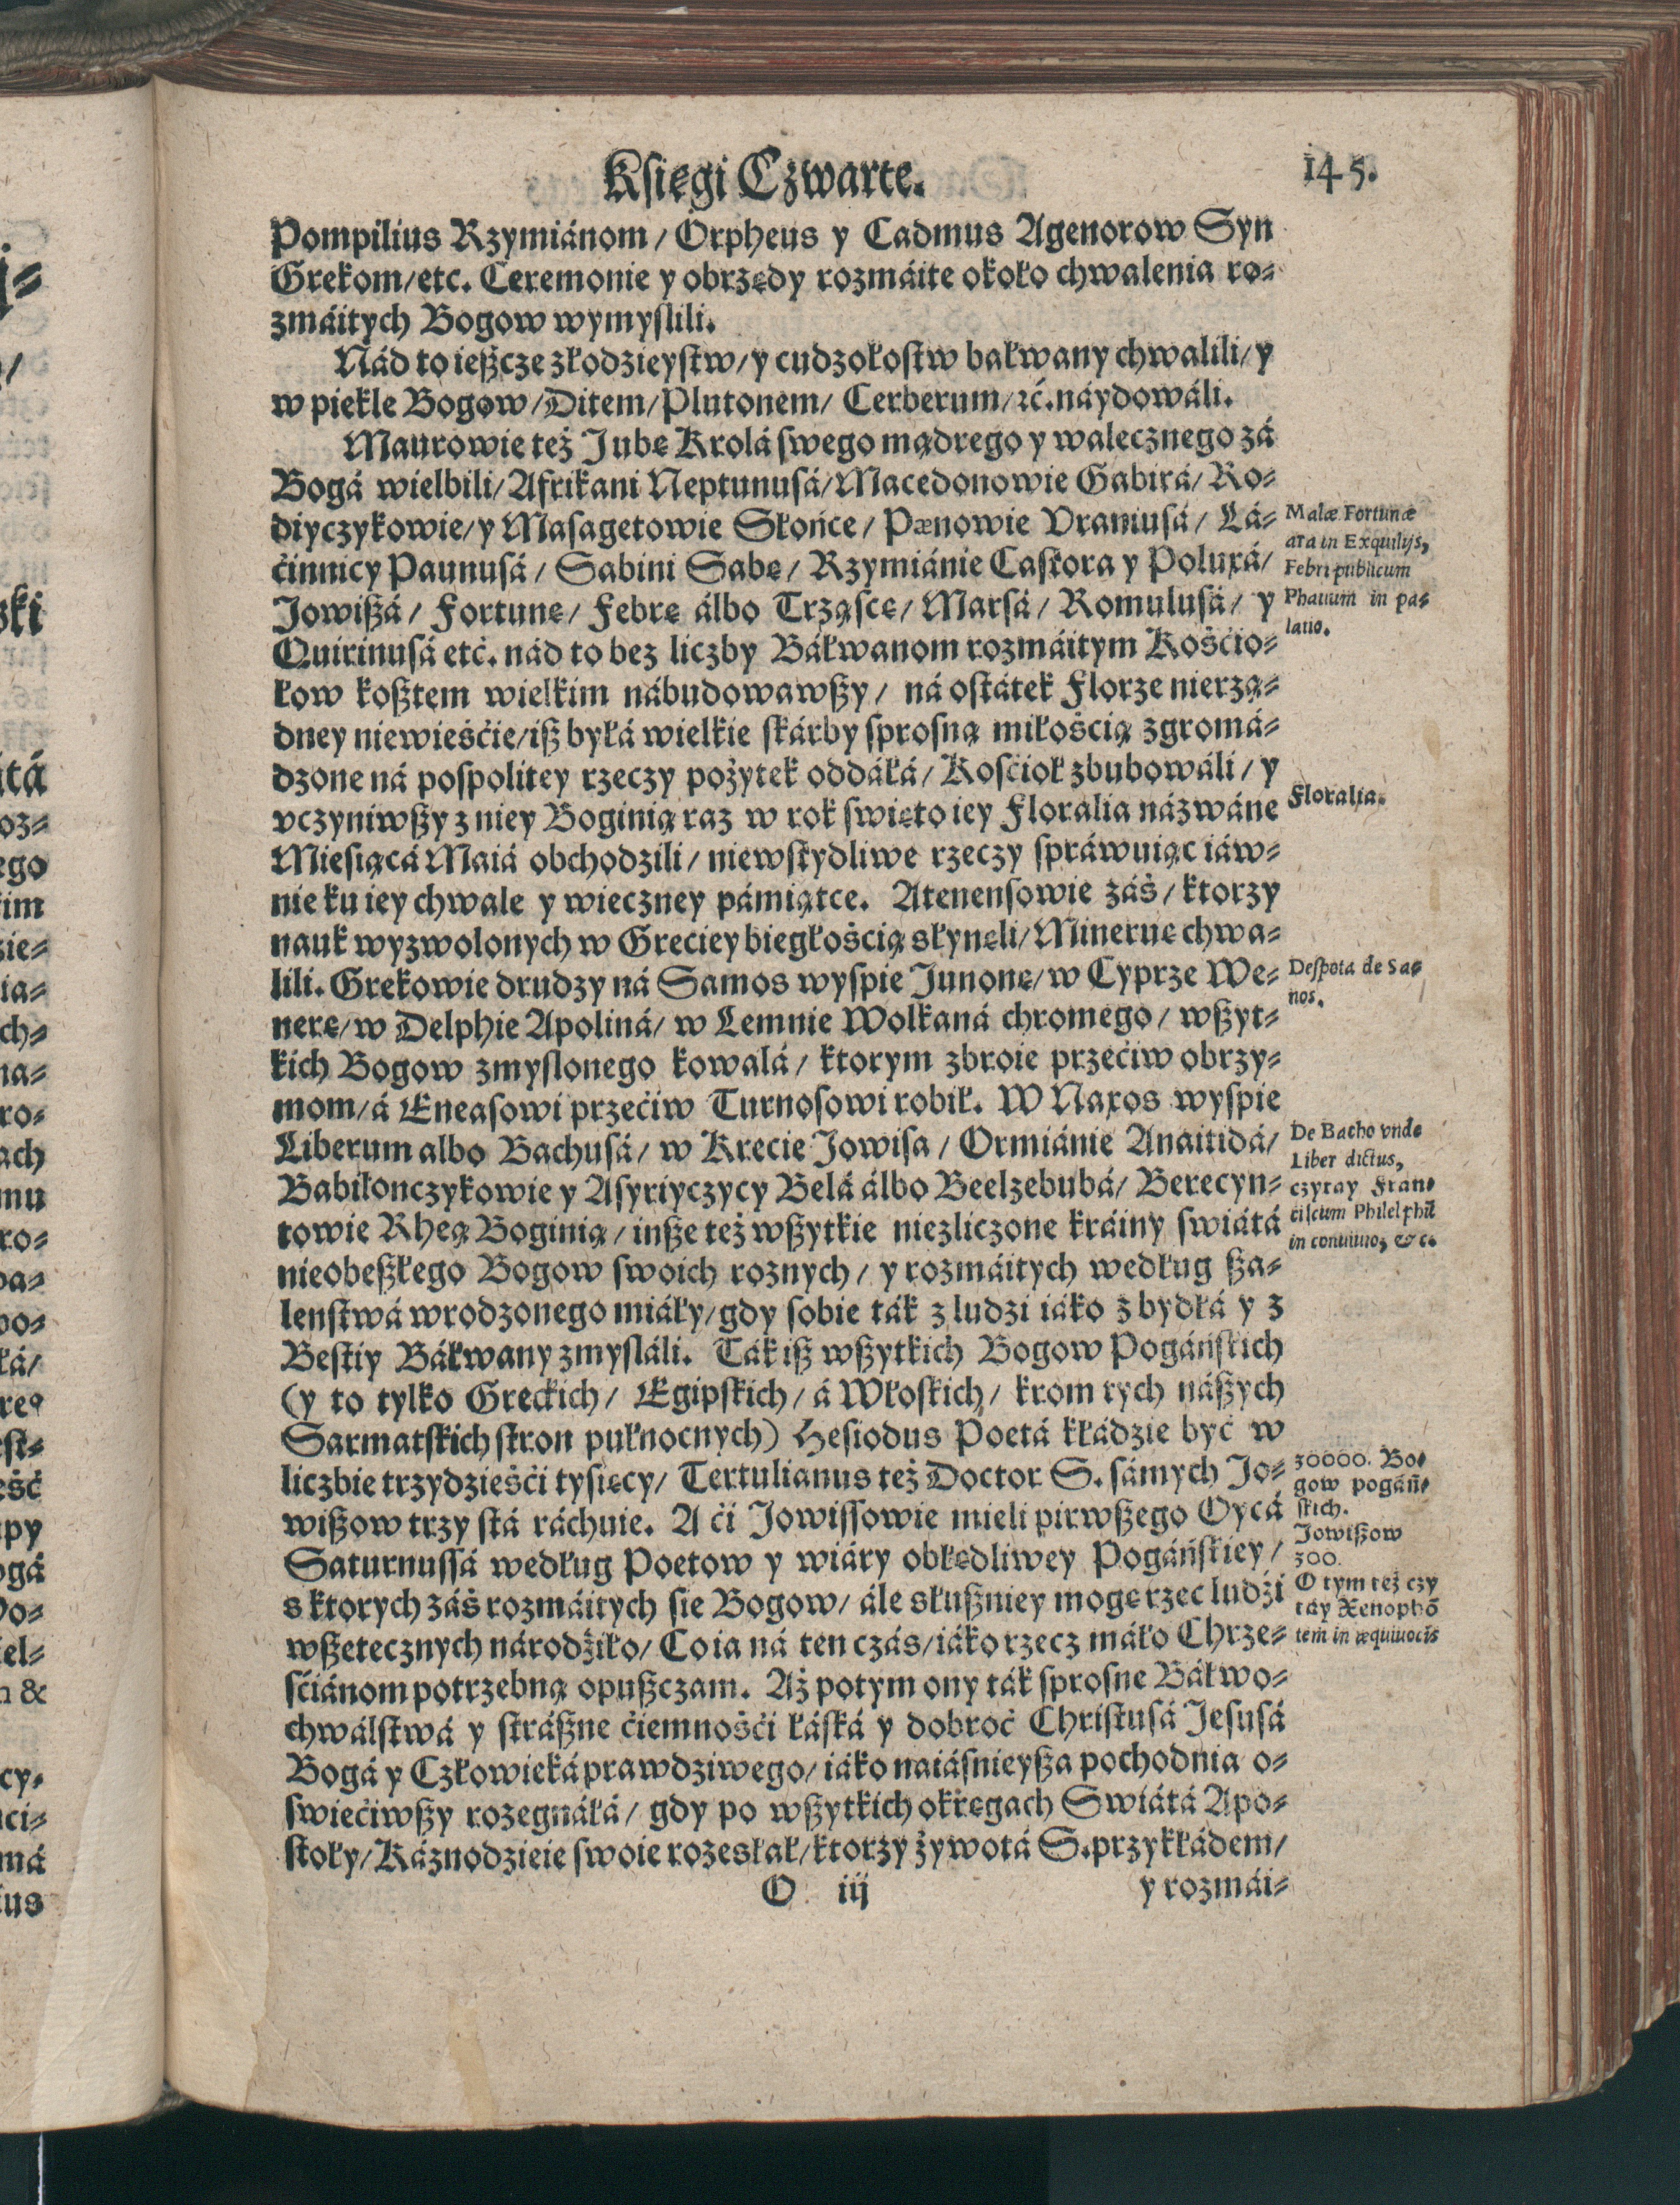 Księgi Czwarte.
145.
Pompilius Rzymiánom / Orpheus y Cadmus Agenorow Syn
Grekom/etc. Ceremonie y obrzędy rozmáite około chwalenia ro⸗
zmáitych Bogow wymyslili.
Nád to ießcze złodzieystw/ y cudzołostw bałwany chwalili/ y
w piekle Bogow /Ditem/Plutonem/ Cerberum/ ꝛć. náydowáli.
Maurowie też Jubę Krolá swego mądrego y walecznego zá
Bogá wielbili/ Afrikani Neptunusá/Macedonowie Gabirá/ Ro⸗
diyczykowie/ y Masagetowie Słońce / Pænowie Vraniusá / Lá⸗
ćinnicy Paunusá / Sabini Sabę / Rzymiánie Castora y Poluxá/
Jowißá / Fortunę / Febrę álbo Trząscę / Marsá / Romulusá / y
Quirinusá etć. nád to bez liczby Báłwanom rozmáitym Kośćio⸗
łow kosztem wielkim nábudowawßy / ná ostátek Florze nierzą⸗
dney niewieśćie/iß byłá wielkie skárby sprosną miłośćią zgromá⸗
dzone ná pospolitey rzeczy pożytek oddáłá / Kośćioł zbubowáli / y
vczyniwßy z niey Boginią raz w rok swięto iey Floralia názwáne
Miesiącá Maiá obchodzili / niewstydliwe rzeczy spráwuiąc iáw⸗
nie ku iey chwale y wieczney pámiątce. Atenensowie záś / ktorzy
nauk wyzwolonych w Greciey biegłośćią słynęli/ Mineruę chwa⸗
lili. Grekowie drudzy ná Samos wyspie Junonę/ w Cyprze We⸗
nerę/ w Delphie Apoliná/ w Lemnie Wolkaná chromego / wßyt⸗
kich Bogow zmyslonego kowalá / ktorym zbroie przećiw obrzy⸗
mom/ á Eneasowi przećiw Turnosowi robił. W Naxos wyspie
Liberum albo Bachusá/ w Krecie Jowisa / Ormiánie Anaitidá/
Babilonczykowie y Asyriyczycy Belá álbo Beelzebubá/ Berecyn⸗
towie Rheą Boginią / inße też wßytkie niezliczone kráiny swiátá
nieobeßłego Bogow swoich roznych / y rozmáitych według ßa⸗
lenstwá wrodzonego miáły/ gdy sobie ták z ludzi iáko z bydłá y z
Bestiy Báłwany zmysláli. Ták iß wßytkich Bogow Pogáńskich
(y to tylko Greckich / Egipskich / á Włoskich / krom tych náßych
Sarmatskich stron pułnocnych) Hesiodus Poetá kłádzie być w
liczbie trzydzieśći tysięcy/ Tertulianus też Doctor S. sámych Jo⸗
wißow trzy stá ráchuie. A ći Jowissowie mieli pirwßego Oycá
Saturnussá według Poetow y wiáry obłędliwey Pogáńskiey /
s ktorych záś rozmáitych sie Bogow/ ále słußniey mogę rzec ludźi
wßetecznych národźiło/ Co ia ná ten czás/ iáko rzecz máło Chrze⸗
śćiánom potrzebną opußczam. Aż potym ony ták sprosne Báłwo⸗
chwálstwá y stráßne ćiemnośći łáská y dobroć Christusá Jesusá
Bogá y Człowieká prawdziwego/ iáko naiásnieyßa pochodnia o⸗
swiećiwßy rozegnáłá / gdy po wßytkich okręgach Swiátá Apo⸗
stoły/ Káznodzieie swoie rozesłał/ ktorzy żywotá S. przykłádem/
O iij
y rozmái⸗
Malæ Fortunæ
ara in Exquilijs,
Febri publicum
Phanum in pa⸗
latio.
Floralia.
Despota de Sa⸗
nos.
De Bacho vnde
Liber dictus,
czytay Fran⸗
ciscum Philelphū
in conuiuio, &c.
30000. Bo⸗
gow pogáń⸗
skich.
Jowißow
300.
O tym też czy
táy Xenophō
tem in æquiuocis